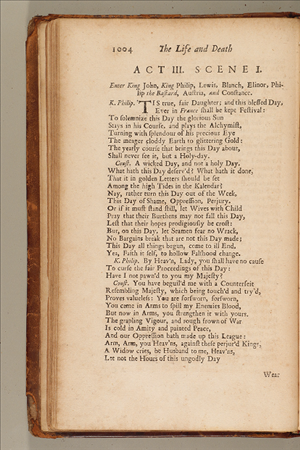 1004 The Life and Death
ACT III. SCENE I.
Enter King John, King Philip, Lewis, Blanch, Elinor, Phi-
lip the Bastard, Austria, and Constance.
K. Philip. 'TIS true, fair Daughter; and this blessed Day,
Ever in France shall be kept Festival:
To solemnize this Day the glorious Sun
Stays in his Course, and plays the Alchymist,
Turning with splendour of his precious Eye
The meager cloddy Earth to glittering Gold:
The yearly course that brings this Day about,
Shall never see it, but a Holy-day.
Const. A wicked Day, and not a holy Day.
What hath this Day deserv'd? What hath it done,
That it in golden Letters should be set
Among the high Tides in the Kalendar?
Nay, rather turn this Day out of the Week,
This Day of Shame, Oppression, Perjury.
Or if it must stand still, let Wives with Child
Pray that their Burthens may not fall this Day,
Lest that their hopes prodigiously be crost:
But, on this Day, let Seamen fear no Wrack,
No Bargains break that are not this Day made;
This Day all things begun, come to ill End,
Yea, Faith it self, to hollow Falshood change.
K. Philip. By Heav'n, Lady, you shall have no cause
To curse the fair Proceedings of this Day:
Have I not pawn'd to you my Majesty?
Const. You have beguil'd me with a Counterfeit
Resembling Majesty, which being touch'd and try'd,
Proves valueless: You are forsworn, forsworn,
You came in Arms to spill my Enemies Blood,
But now in Arms, you strengthen it with yours.
The grapling Vigour, and rough frown of War
Is cold in Amity and painted Peace,
And our Oppression hath made up this League:
Arm, Arm, you Heav'ns, against these perjur'd Kings,
A Widow cries, be Husband to me, Heav'ns,
Let not the Hours of this ungodly Day
Wear